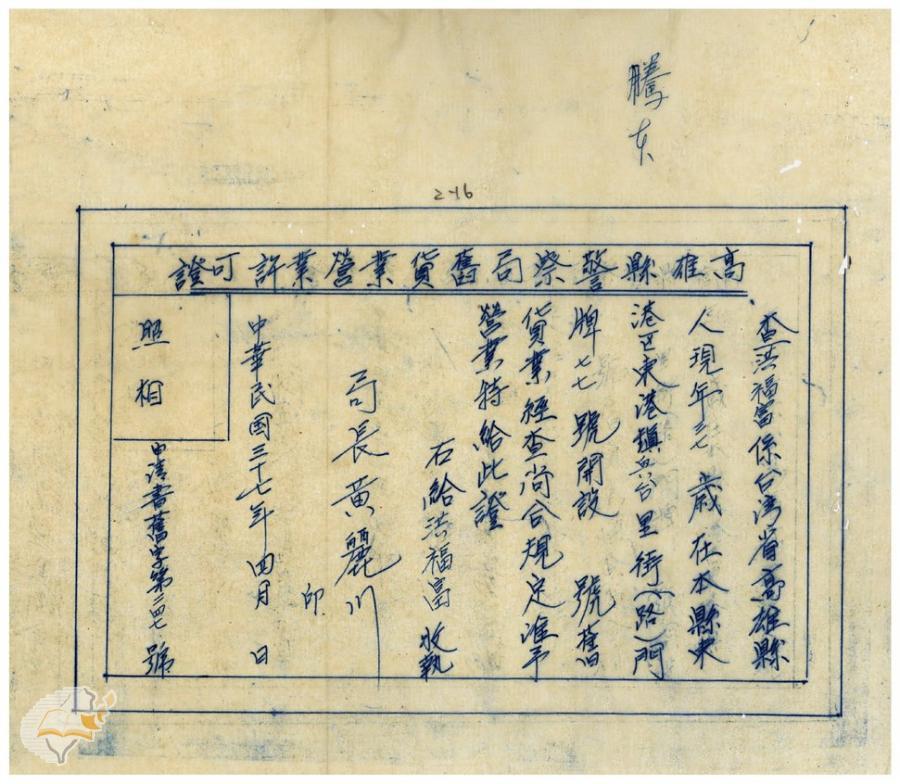 騰本
2-16
高雄縣警察局舊貨業營業許可證
查洪福富係台灣省高雄縣
人現年 歲在本縣東
港區東港鎮 里街(路)門
牌七七號開設 號舊
貨業經查尚合規定准予
營業特給此證
右給洪福富收執
局長黃麗川
印
中華民國三十七年四月 日
照相
申請書舊字第二四七號